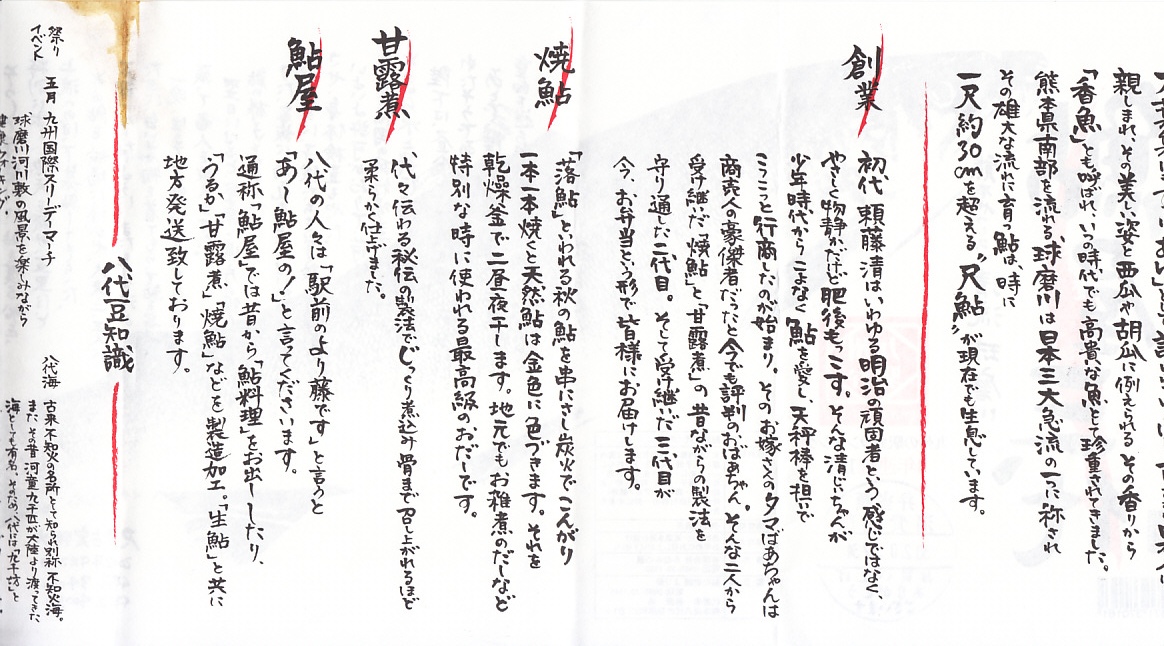 親しまれ、その美しい姿と西瓜や胡瓜に例えられる その香りから
「香魚」とも呼ばれ、いつの時代でも高貴な魚として珍重されてきました。
熊本県南部を流れる、球磨川は日本三大急流の一つに称され
その雄大な流れに育つ鮎は、時に
一尺約30cmを超える"尺鮎"が現在でも生息しています。
創業
初代 頼藤 清はいわゆる明治の頑固者という感じではなく、
やさしく物静かだけど肥後もっこす。そんな清じいちゃんが
少年時代からこよなく鮎を愛し、天秤棒を担いで
こつこつと行商したのが始まり。そのお嫁さんのタマばあちゃんは
商売人の豪傑者だったと今でも評判のおばあちゃん。そんな二人から
受け継いだ「焼鮎」と「甘露煮」の昔ながらの製法を
守り通した二代目。そして受け継いだ三代目が
今、お弁当という形で皆様にお届けします。
焼鮎
「落鮎」といわれる秋の鮎を串にさし炭火でこんがり
一本一本焼くと天然鮎は金色に色づきます。それを
乾燥釜で一昼夜干します。地元でもお雑煮のだしなど
特別な時に使われる最高級のおだしです。
甘露煮
代々伝わる秘伝の製法でじっくり煮込み骨まで召し上がれるほど
柔らかく仕上げました。
鮎屋
八代の人々は「駅前のより藤です」と言うと
「あ〜鮎屋の!」と言ってくださいます。
通称「鮎屋」では昔から「鮎料理」をお出ししたり、
「うるか」「甘露煮」「焼鮎」などを製造加工。「生鮎」と共に
地方発送致しております。
八代豆知識
祭り
イベント
五月 九州国際スリーデーマーチ
球磨川河川敷の風景を楽しみながら
八代海
古来 不知火の名所として知られ別称 不知火海。
また、その昔 河童九千匹が大陸より渡ってきた
海としても有名。そのため、八代には「九千坊」と